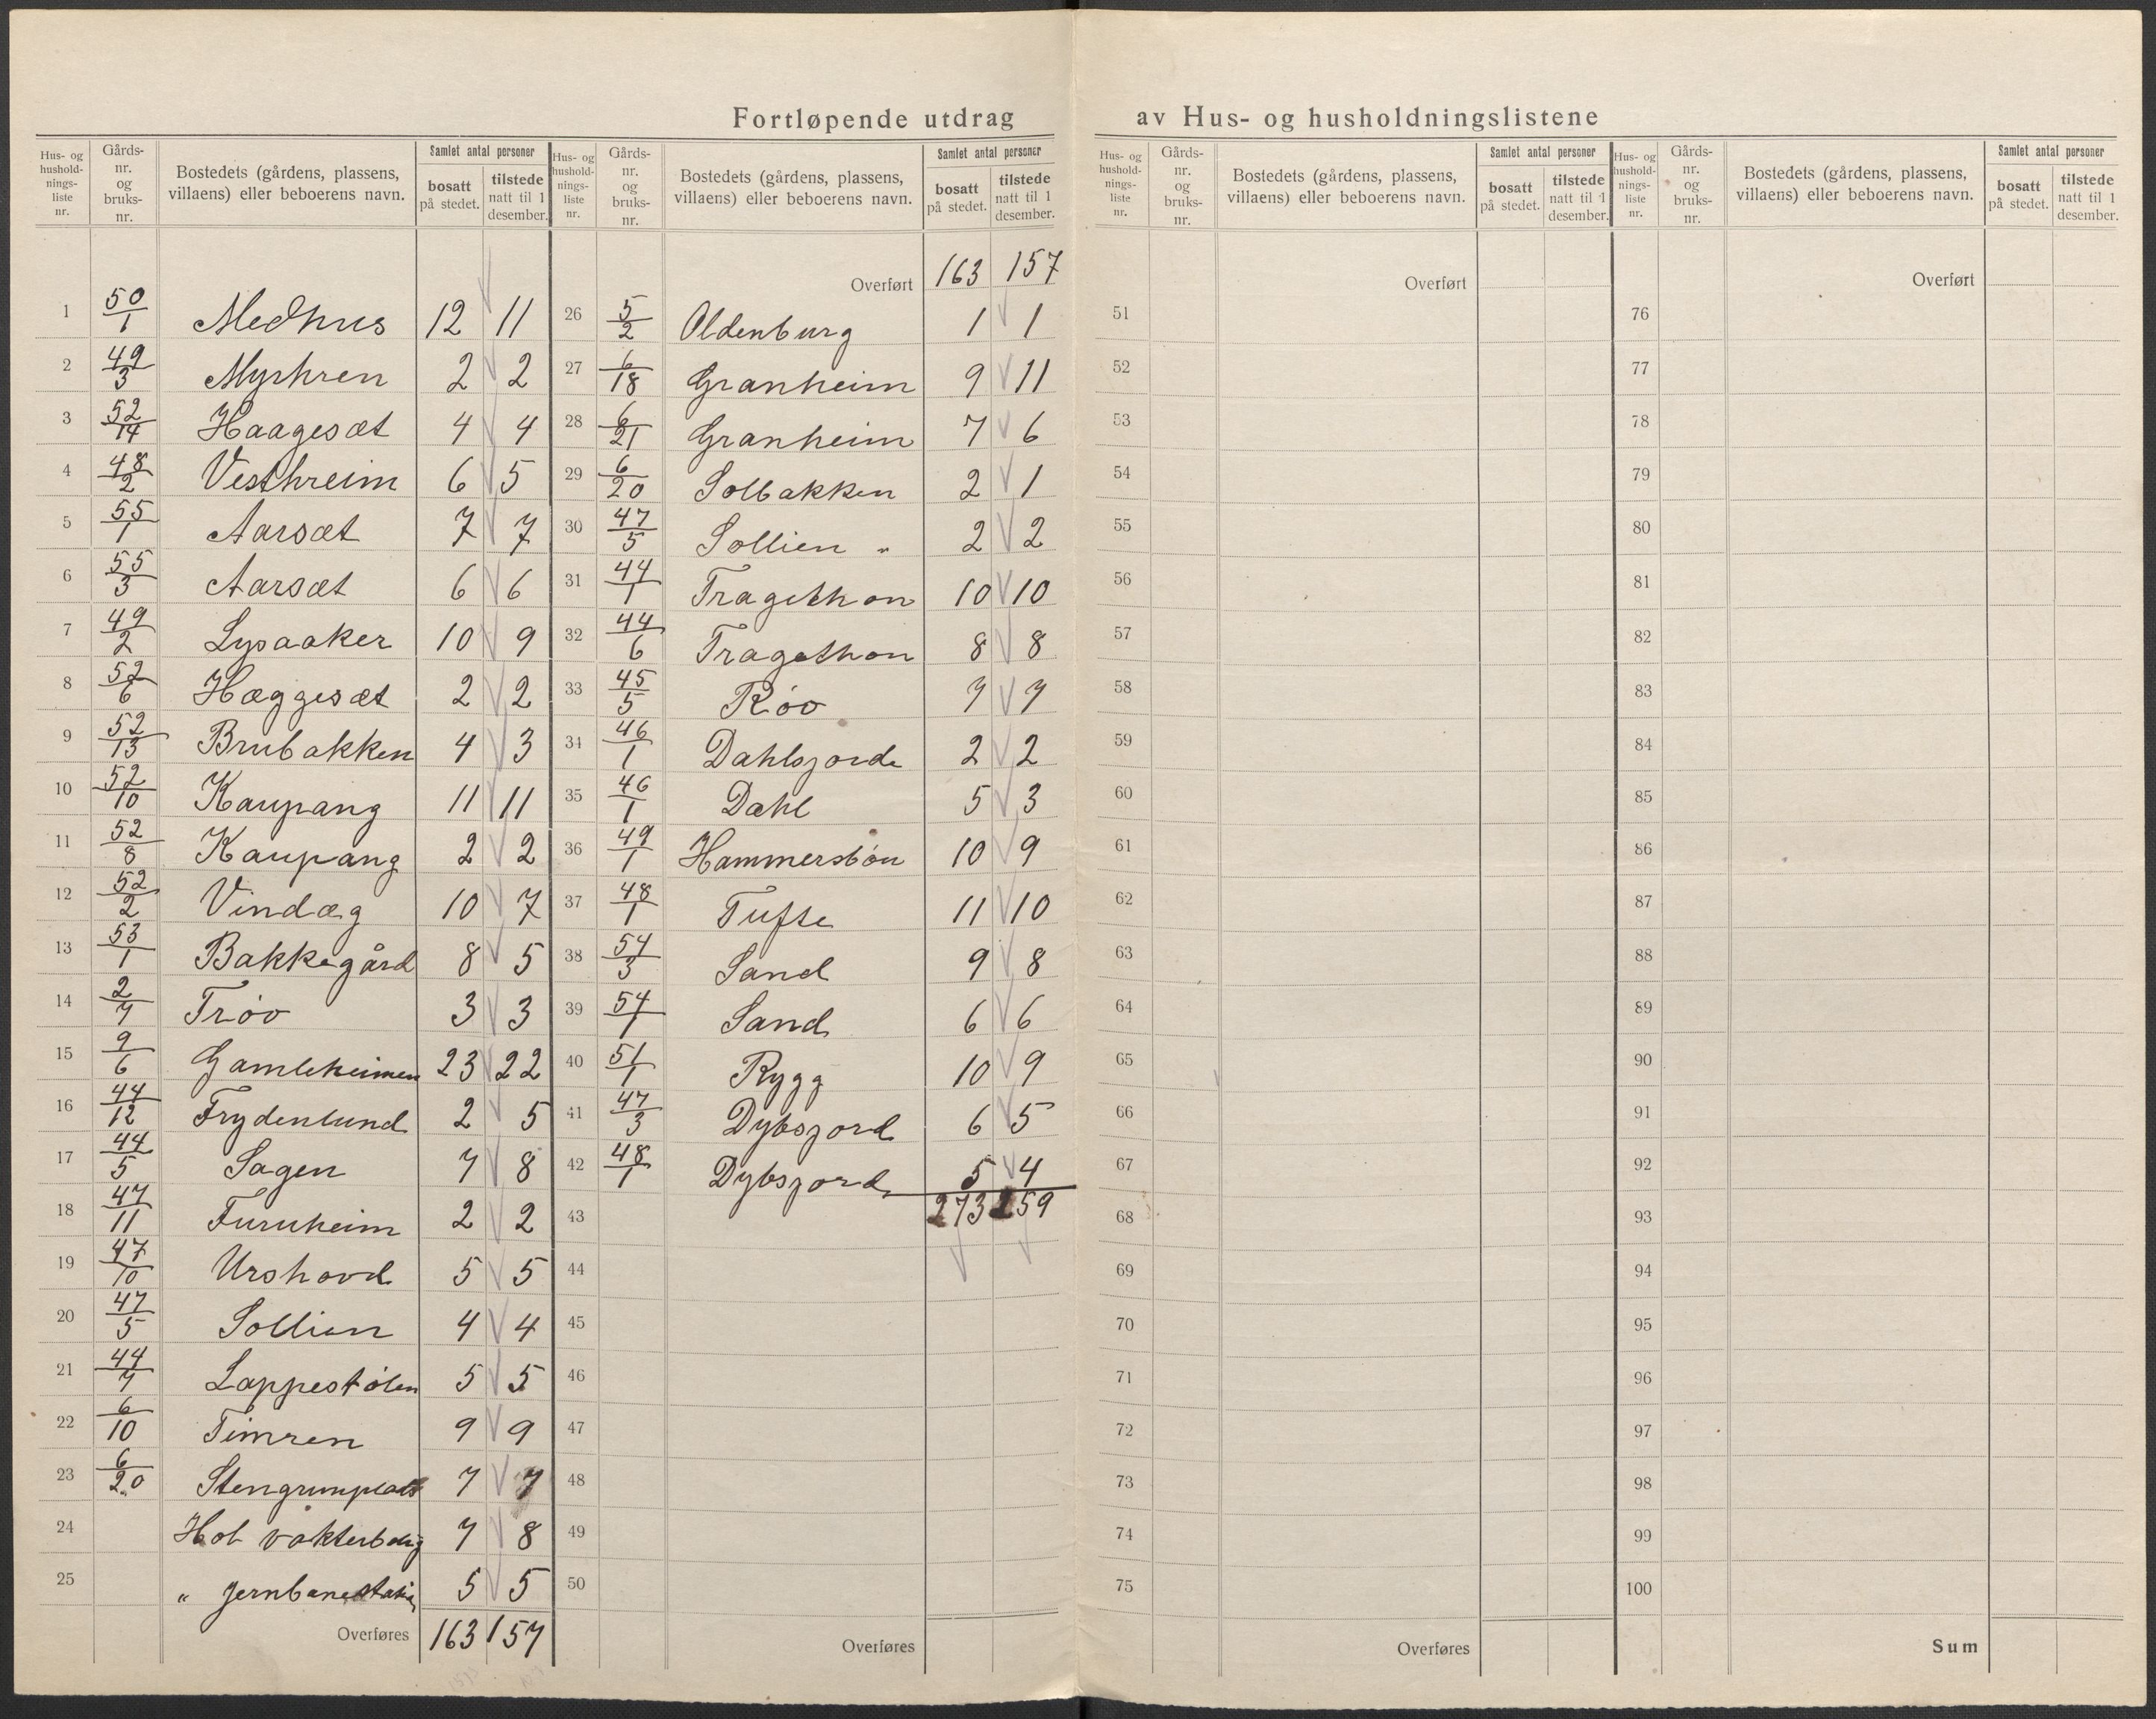 Fortløpende utdrag av Hus- og husholdningslistene
Hus- og husholdningsliste nr. | Gårdsnr. og bruksnr. | Bostedets (gårdens, plassens, villaens) eller beboerens navn. | Samlet antal personer | bosatt på stedet. | tilstede natt til 1 desember.
1 50/1 Medhus 12 11
2 49/3 Myrhren 2 2
3 52/14 Haagesæt 4 4
4 48/2 Vesthreim 6 5
5 55/1 Aarsæt 7 7
6 55/3 Aarsæt 6 6
7 49/2 Lysaaker 10 9
8 52/6 Hæggesæt 2 2
9 52/13 Brubakken 4 3
10 52/10 Kaupang 11 11
11 52/8 Kaupang 2 2
12 52/2 Vindæg 10 7
13 53/1 Bakkegård 8 5
14 2/7 Trøo 3 3
15 9/6 Gamleheimen 23 22
16 44/12 Frydenlund 2 5
17 44/5 Sagen 7 8
18 47/11 Furuheim 2 2
19 47/10 Urshovd 5 5
20 47/5 Sollien 4 4
21 44/7 Lappestølen 5 5
22 6/10 Timren 9 9
23 6/20 Stengrumplads 7 7
24 Hol vokterbolig 7 8
25 " Jernbanestation 5 5
Overføres 163 157
Hus- og husholdningsliste nr. | Gårdsnr. og bruksnr. | Bostedets (gårdens, plassens, villaens) eller beboerens navn. | Samlet antal personer | bosatt på stedet. | tilstede natt til 1 desember.
Overført 163 157
26 5/2 Oldenburg 1 1
27 6/18 Granheim 9 11
28 6/21 Granheim 7 6
29 6/20 Solbakken 2 1
30 47/5 Sollien " 2 2
31 44/1 Tragethon 10 10
32 44/6 Tragethon 8 8
33 45/5 Røo 7 7
34 46/1 Dahlsjorde 2 2
35 46/1 Dahl 5 3
36 49/1 Hammersbøn 10 9
37 48/1 Tufte 11 10
38 54/3 Sand 9 8
39 54/1 Sand 6 6
40 51/1 Rygg 10 9
41 47/3 Dybsjord 6 5
42 48/1 Dybsjord 5 4
43 273 259
44
45
46
47
48
49
50
Overføres
Hus- og husholdningsliste nr. | Gårdsnr. og bruksnr. | Bostedets (gårdens, plassens, villaens) eller beboerens navn. | Samlet antal personer | bosatt på stedet. | tilstede natt til 1 desember.
Overført
51
52
53
54
55
56
57
58
59
60
61
62
63
64
65
66
67
68
69
70
71
72
73
74
75
Overføres
Hus- og husholdningsliste nr. | Gårdsnr. og bruksnr. | Bostedets (gårdens, plassens, villaens) eller beboerens navn. | Samlet antal personer | bosatt på stedet. | tilstede natt til 1 desember.
Overført
76
77
78
79
80
81
82
83
84
85
86
87
88
89
90
91
92
93
94
95
96
97
98
99
100
Sum